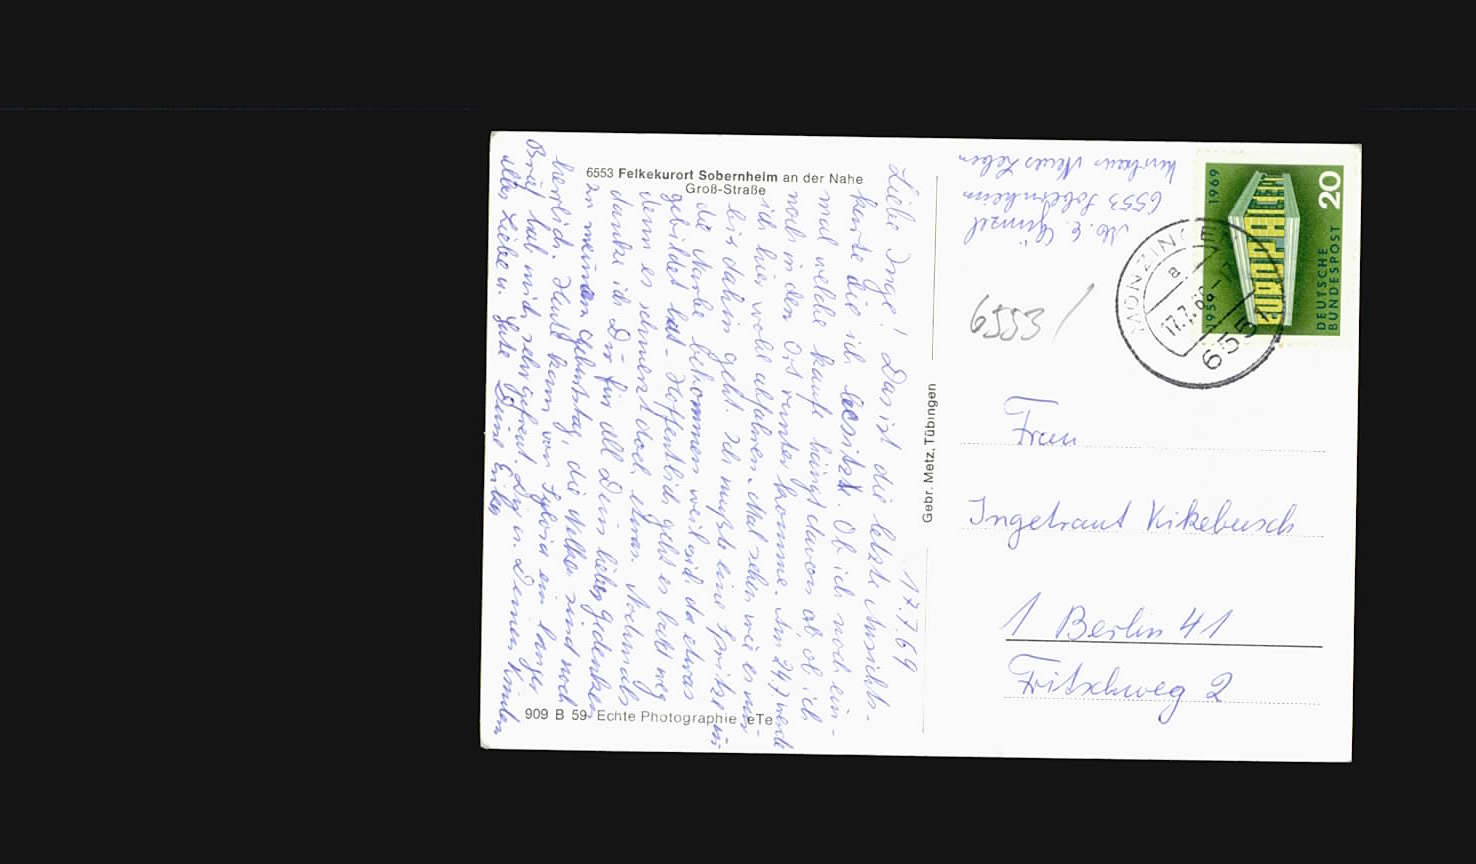 6553 Felkekurort Sobernheim an der Nahe
Groß-Straße
17.7.69
Liebe Inge! Das ist die letzte Ansichts-
karte die ich besitze. Ob ich noch ein-
mal welche kaufe hängt davon ab ob ich
noch in den Ort runter komme. Am 24.7 werde
ich hier wohl abfahren. Mal sehen wie es mir
bis dahin geht. Ich mußte eine Spritze in
die Narbe bekommen weil sich da etwas
gebildet hat. Hoffentlich geht es bald weg
denn es schmerzt doch etwas. Nochmals
danke ich Dir für all Dein liebes Gedenken
zu meinem Geburtstag, die Nelken sind noch
herrlich. Heute kam von Sylvia ein langer
Brief hab mich sehr gefreut. Dir u. Deinen Kindern
alles Liebe u. Gute Deine
909 B 59 Echte Photographie eTe
Gebr. Metz, Tübingen
6553 Sobernheim
Kurhaus Neues Leben
6553
MONZINGEN
a
17.7.69
655
1969
1959
EUROPA CEPT
20
DEUTSCHE
BUNDESPOST
Frau
Ingetraut Kikebusch
1 Berlin 41
Fritschweg 2